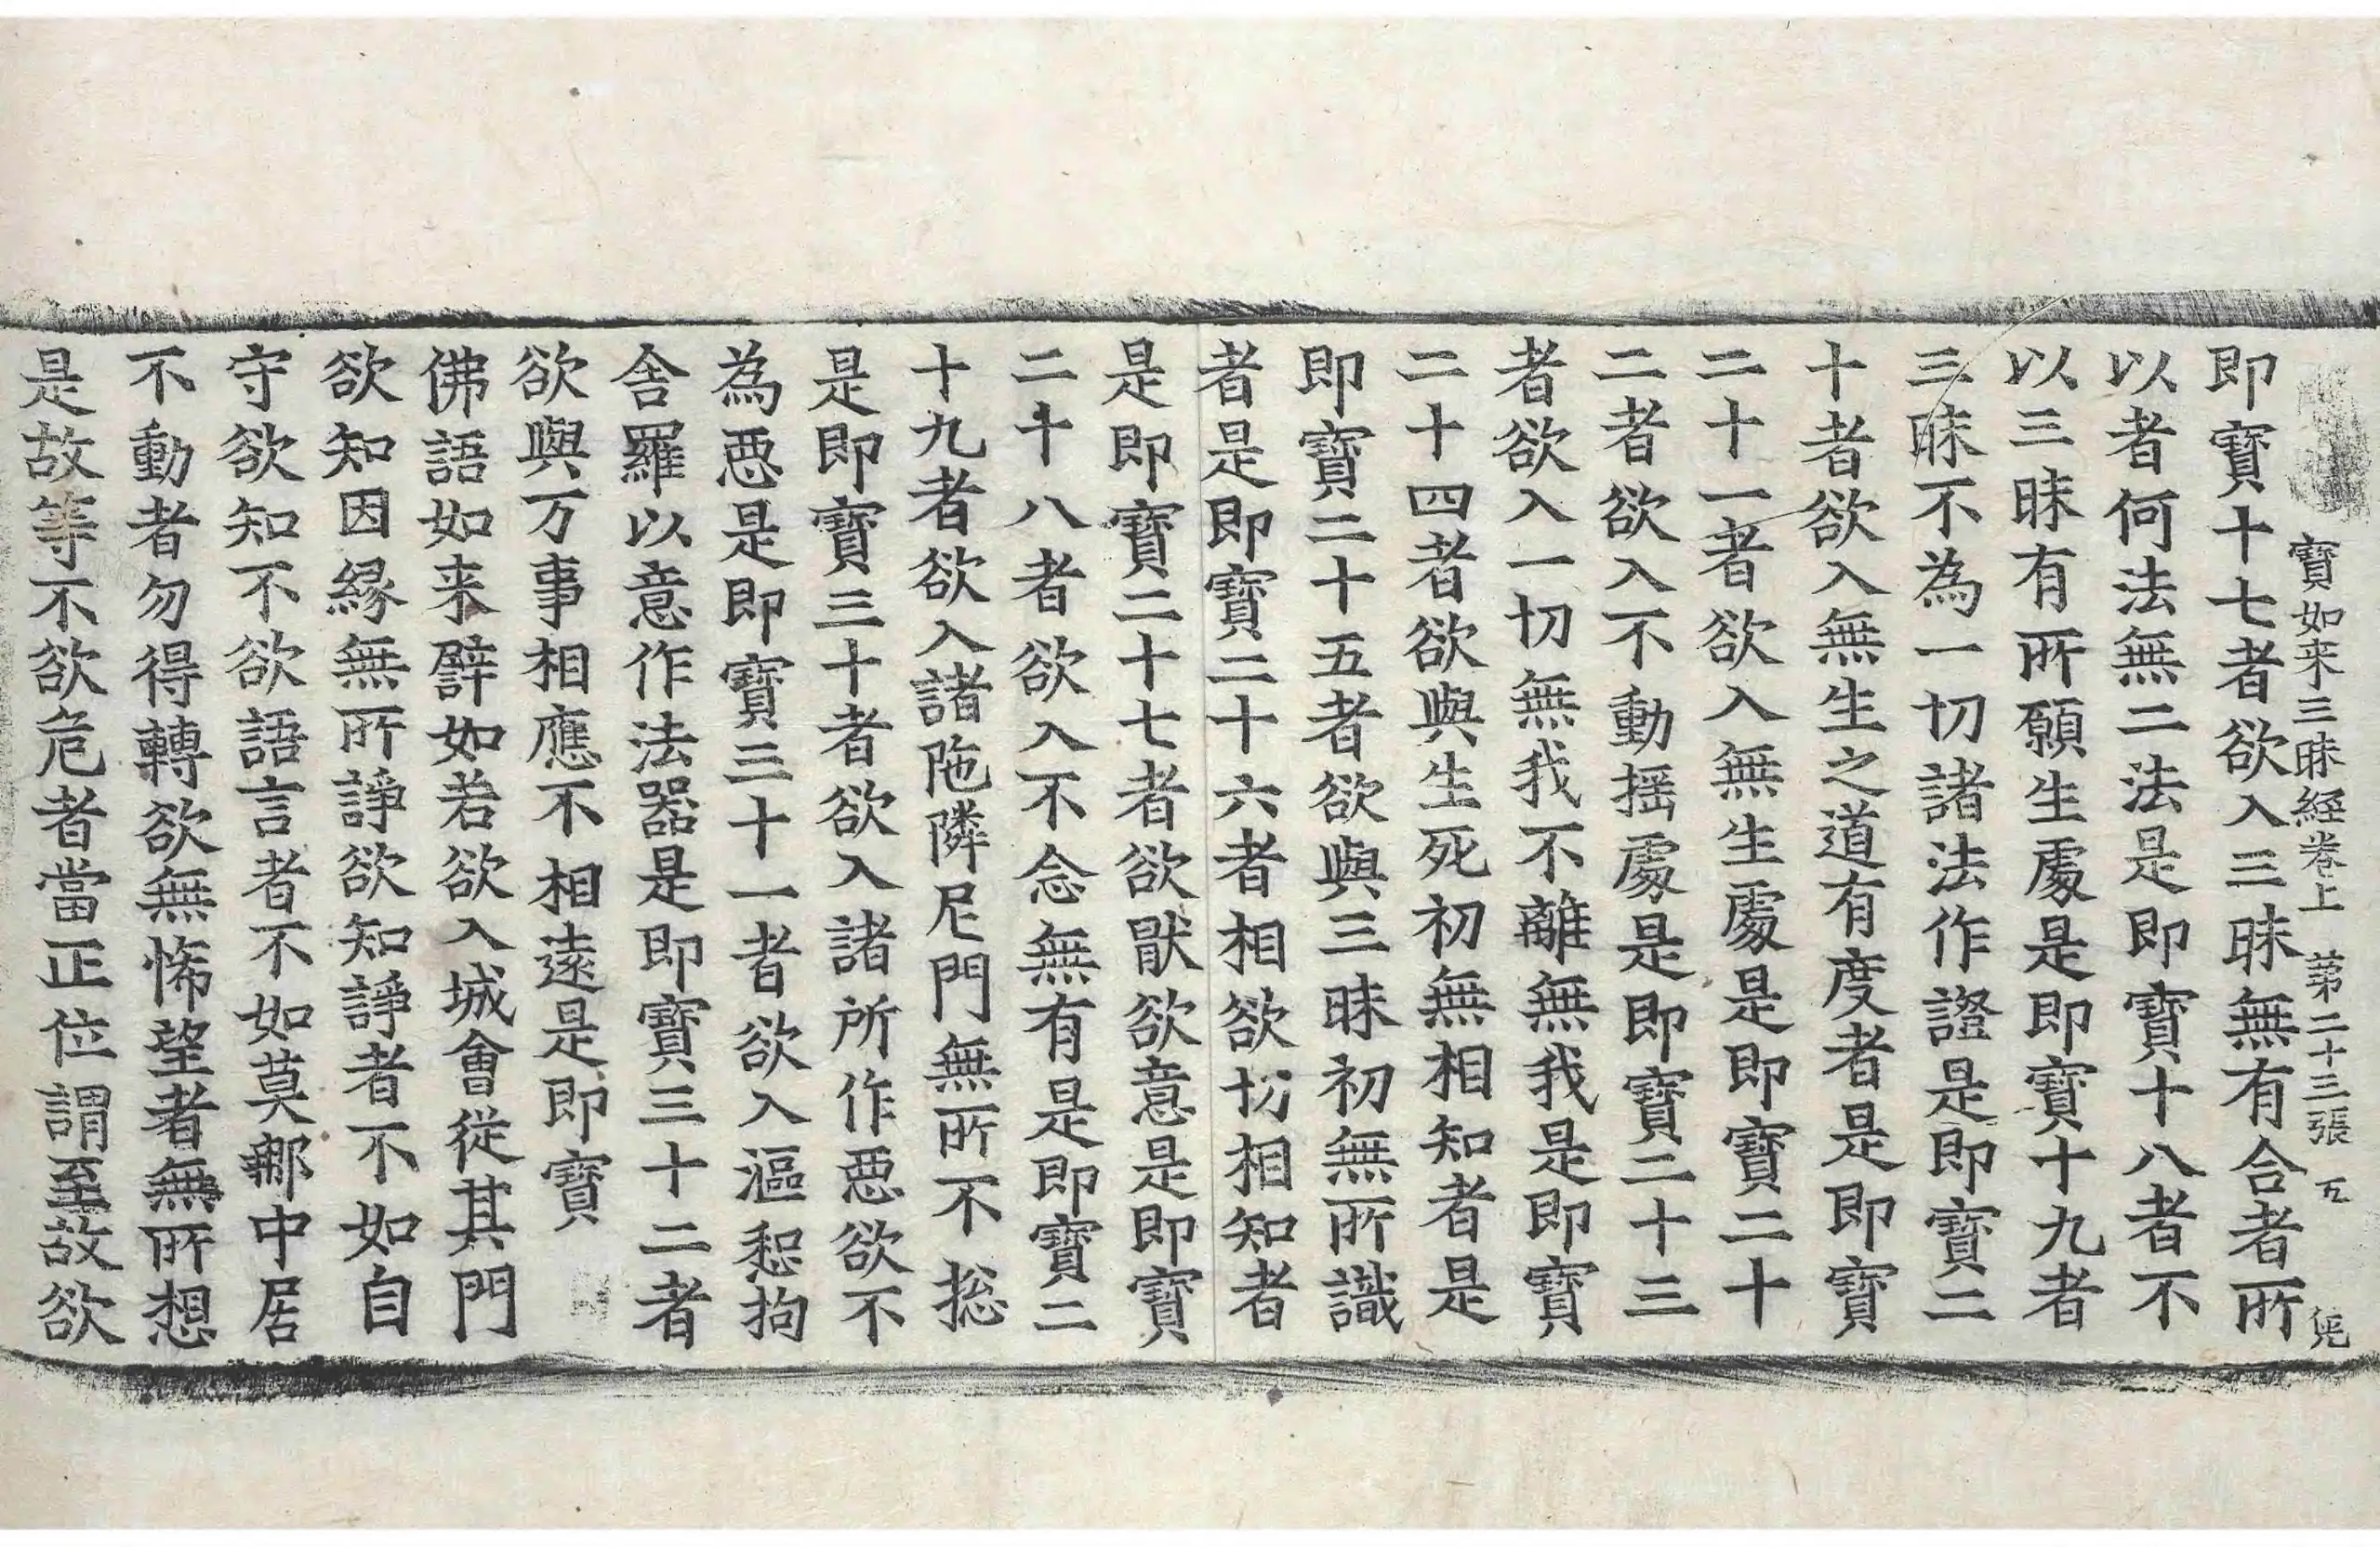 寶如来三昧経卷上 苐二十三張 㐧
即寶十七者欲入三昧無有合者所
以者何法無二法是即寶十八者不
以三昧有所願生處是即寶十九者
三昧不為一切諸法作證是即寶二
十者欲入無生之道有度者是即寶
二十一者欲入無生處是即寶二十
二者欲入不動揺處是即寶二十三
者欲入一切無我不離無我是即寶
二十四者欲與生死初無相知者是
即寶二十五者欲與三昧初無所識
者是即寶二十六者相欲切相知者
是即寶二十七者欲猒欲意是即寶
二十八者欲入不念無有是即寶二
十九者欲入諸陁隣尼門無所不捴
是即寶三十者欲入諸所作惡欲不
為惡是即寶三十一者欲入漚惒拘
舎羅以意作法器是即寶三十二者
欲與万事相應不相遠是即寶
佛語如来譬如若欲入城會從其門
欲知因縁無所諍欲知諍者不如自
守欲知不欲語言者不如莫郍中居
不動者勿得轉欲無悕望者無所想
是故等不欲危者當正位謂至故欲